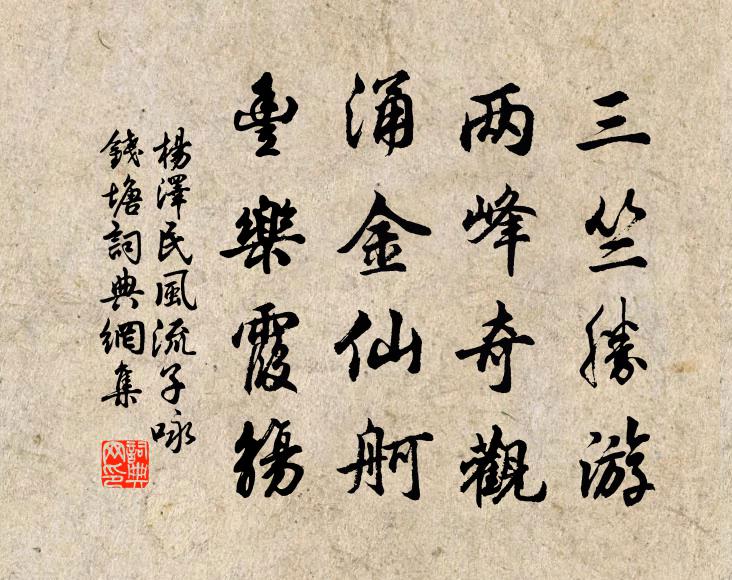 三竺勝游
两峰奇觀
涌金仙舸
豊樂霞觴
楊澤民風流子咏
錢塘詞典網集
詞典网印